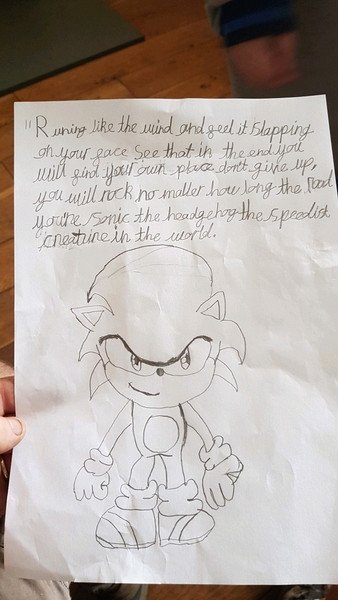 "Runing like the wind and feel it slapping
on your face see that in the end you
will find your own place don't give up,
you will rock no matter how long the road
you're sonic the headgehog the speedist
creature in the world.